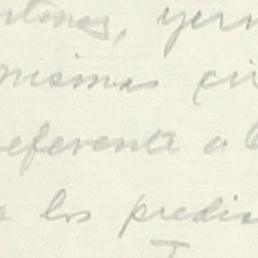 yern
mismas cir
referente a l
a los predis